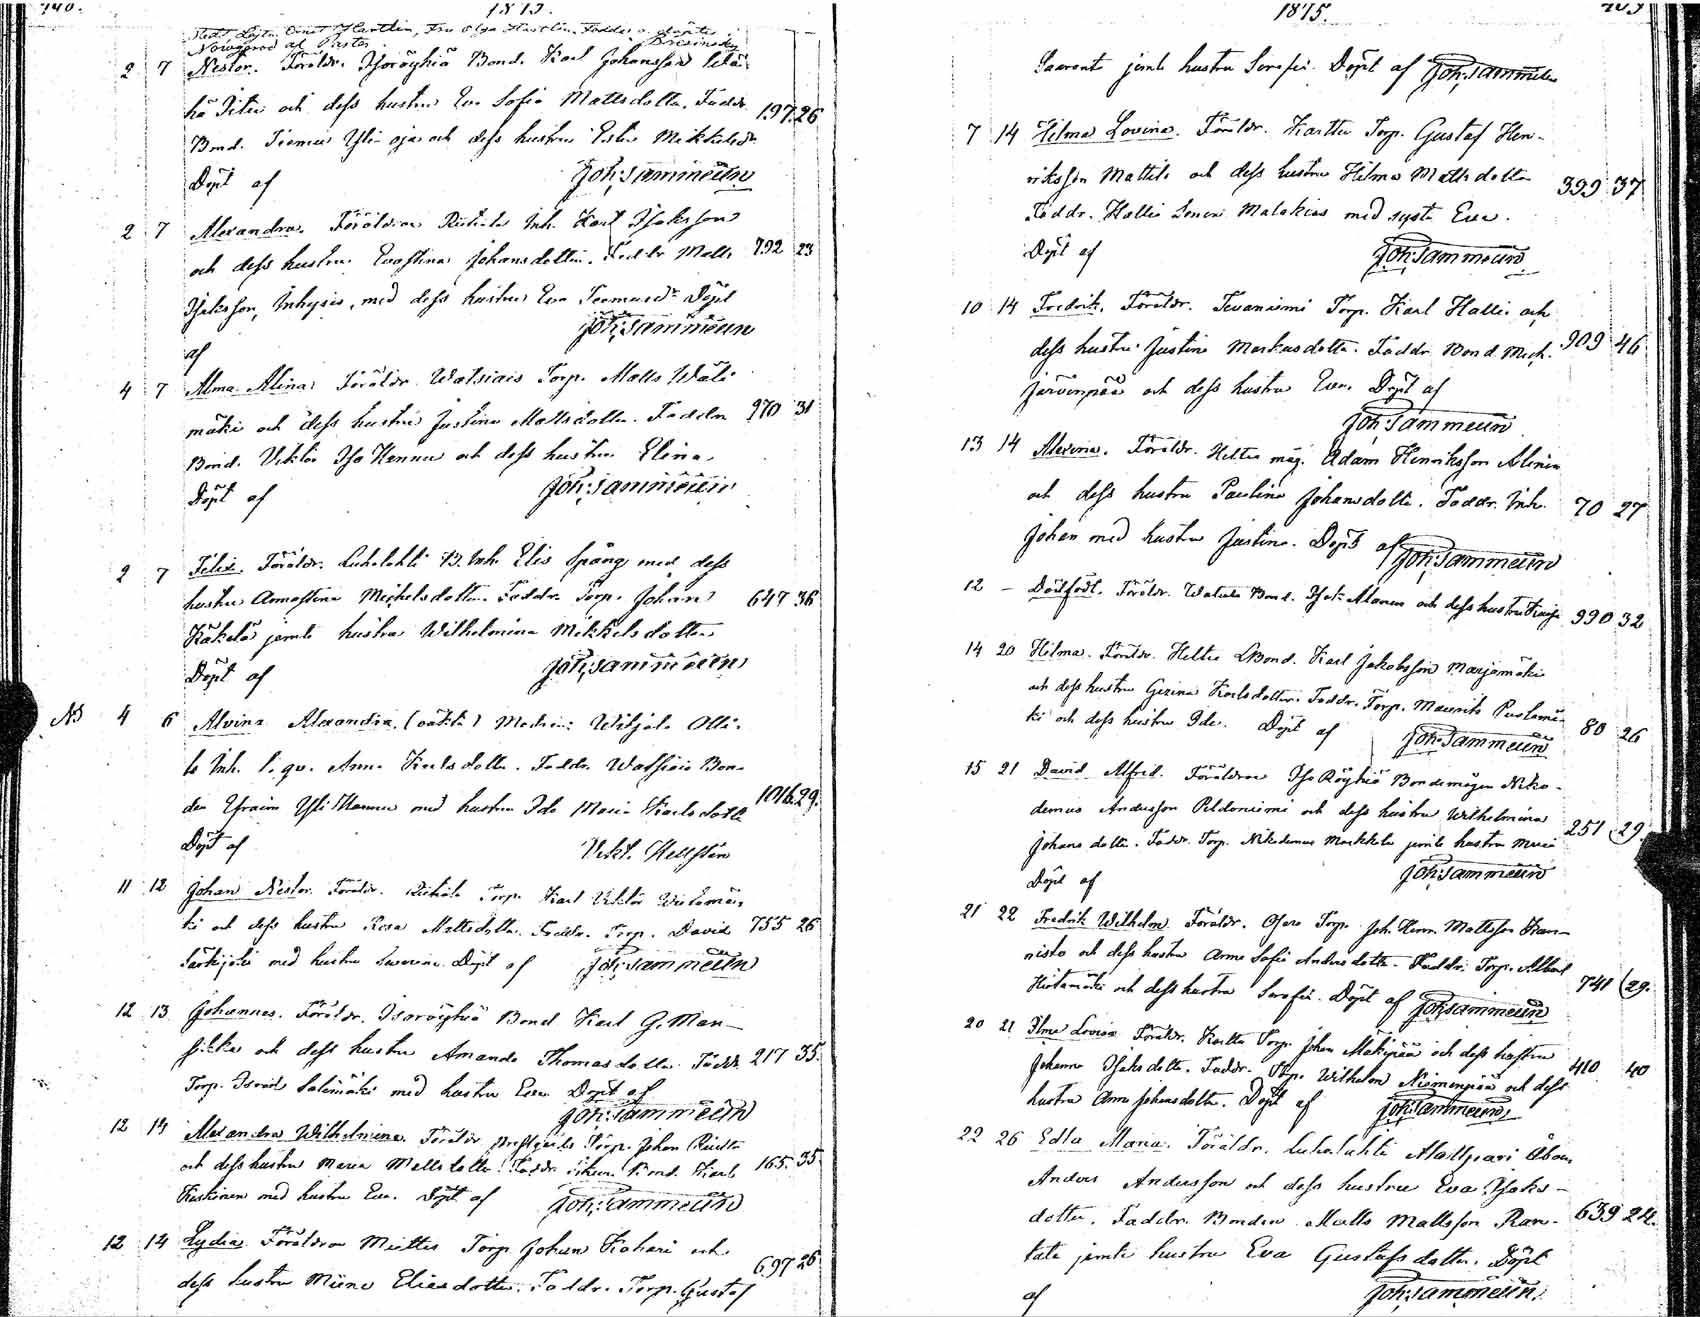 1875.
2 7 Nestor. Föräldr. Isoröyhiö Bond. Karl Johansson
och dess hustru Eva Sofia Mattsdotter. Faddr. 197. 26
Bond. Yli-oja och dess hustru Ester Mikkelsdr
Döpt af Joh: Sammeün
2 7 Alexandra. Föräldrar Inh. Karl Isaksson
och dess hustru Evastina Johansdotter. Faddr Matts 792 23
Isaksson, Inhysis, med dess hustru Eva Döpt
af Joh: Sammeün
4 7 Alma Alina. Föräldr. Watsiais Torp. Matts Wäli-
mäki och dess hustru Justina Mattsdotter. Faddr 970 31
Bond. Viktor Iso Hannu och dess hustru Elina.
Döpt af Joh: Sammeün
2 7 Felix. Föräldr. Luhalahti B. Inh. Elis Spång med dess
hustru Annastina Michelsdotter. Faddr. Torp. Johan 647 36
Käkelä jemte hustru Wilhelmina Mikkelsdotter
Döpt af Joh: Sammeün
4 6 Alvina Alexandra. (oäkta) Modren: Witjala Olli-
la Inh. l. qv. Anna Karlsdotter. Faddr. Watsiais Bon-
den Efraim Yli Hannu med hustru Ida Maria Karlsdott 1016. 29.
Döpt af Vikt. Hellstén
11 12 Johan Nestor. Föräldr. Torp. Karl Viktor
ki och dess hustru Rosa Mattsdotter. Faddr. Torp. David 755 26
Särkijoki med hustru Severina. Döpt af Joh: Sammeün
12 13 Johannes. Föräldr. Isoröyhiö Bond Karl G. Man-
sikka och dess hustru Amanda Thomasdotter. Faddr 217 35.
Torp. Israel Salimäki med hustru Eva. Döpt af
Joh: Sammeün
12 14 Alexandra Wilhelmina. Föräldr. Torp. Johan
och dess hustru Maria Mattsdotter. Faddr. Bond. Karl 165. 35
Koskinen med hustru Eva. Döpt af Joh: Sammeün
12 14 Lydia. Föräldrar Miettis Torp. Johan Kohari och
dess hustru Miina Eliedotter. Faddr. Torp. Gustaf 697 26
1875. 403
Saaranto jemte hustru Serafia. Döpt af Joh: Sammeün
7 14 Hilma Lovina. Föräldr. Karttu Torp. Gustaf Hen-
riksson Mattila och dess hustru Hilma Mattsdotter 399 37
Faddr. Hallis Sonen Malakias med syster Eva.
Döpt af Joh: Sammeün
10 14 Fredrik. Föräldr. Tevaniemi Torp. Karl Halli och
dess hustru Justina Markusdotter. Faddr. Bond. Mich. 909 46
Järvenpää och dess hustru Eva. Döpt af
Joh: Sammeün
13 14 Alexina. Föräldr. Heittis måg. Adam Henriksson
och dess hustru Paulina Johansdotter. Faddr. Inh. 70 27
Johan med hustru Justina. Döpt af Joh: Sammeün
12 – Dödfödt. Föräldr. Watula Bond. Isak Alanen och dess hustru 990 32
14 20 Hilma. Föräldr. Heittis LBond. Karl Jakobsson Marjamäki
och dess hustru Gezina Karlsdotter. Faddr. Torp. Maurits
ki och dess hustru Ida. Döpt af Joh: Sammeün 80 26
15 21 David Alfrid. Föräldrar Iso Röyhiö Bondemågen Niko-
demus Andersson Peldoniemi och dess hustru Wilhelmina
Johansdotter. Faddr. Torp. Nikodemus Markkula jemte hustru Maria 251 (29.
Döpt af Joh: Sammeün
21 22 Fredrik Wilhelm Föräldr. Osara Torp. Joh. Herm. Mattsson Kan-
nisto och dess hustru Anna Sofia Andersdotter. Faddr. Torp. Albert
Hietamäki och dess hustru Serafia. Döpt af Joh: Sammeün 741 (29.
20 21 Ilma Lovisa Föräldr. Karttu Torp. Johan Mäkipää och dess hustru
Johanna Isaksdotter. Faddr. Torp. Wilhelm Niemenpää och dess 410 40
hustru Anna Johansdotter. Döpt af Joh: Sammeün
22 26 Edla Maria. Föräldr. Luhalahti Mattpari Åbon
Anders Andersson och dess hustru Eva Isaks-
dotter. Faddr. Bonden Matts Mattsson Ran- 639 24.
tala jemte hustru Eva Gustafsdotter. Döpt
af Joh: Sammeün.